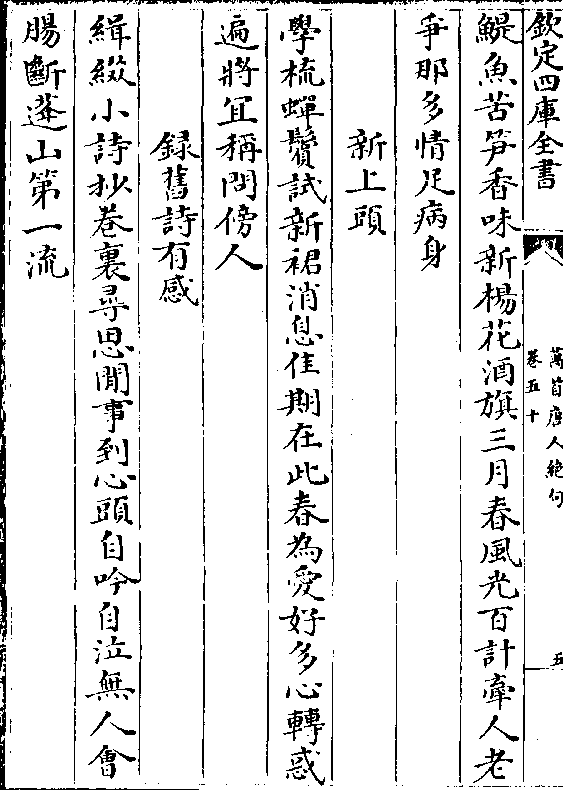 欽定四庫全書
萬首唐人絶句
卷五十
五
鯷魚苦笋香味新楊花酒旗三月春風光百計牽人老
爭那多情足病身
新上頭
學梳蟬鬢試新裙消息佳期在此春為愛好多心轉惑
遍將宜稱問傍人
録舊詩有感
緝綴小詩抄卷裏尋思閒事到心頭自吟自泣無人會
腸斷蓬山第一流